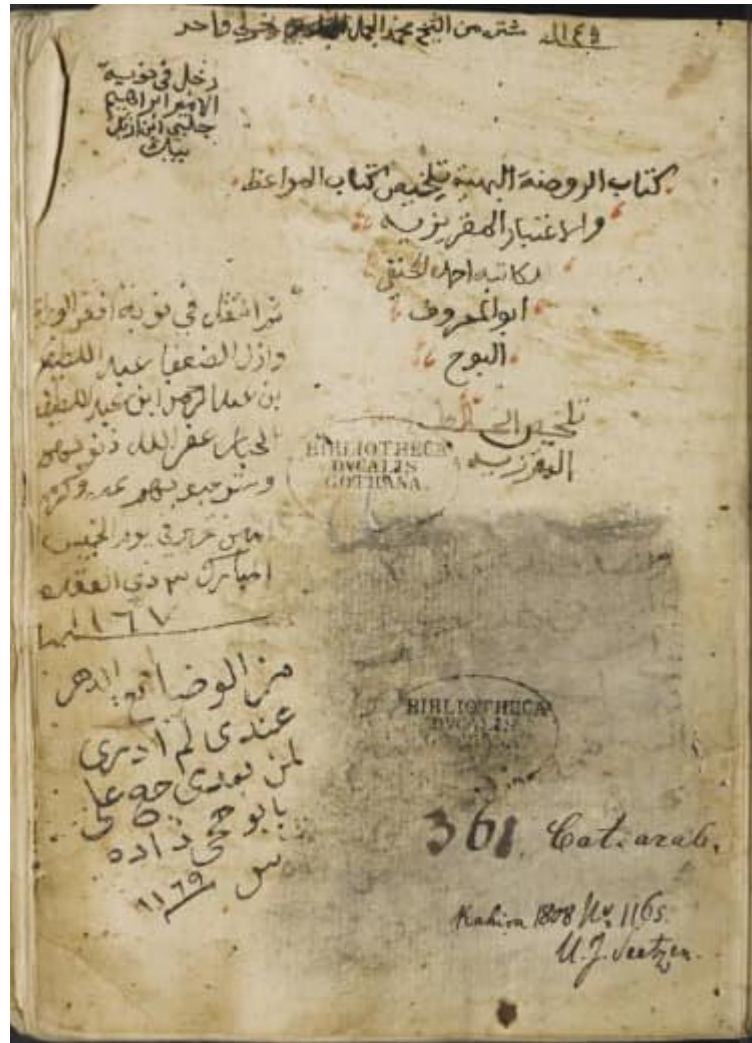 مشترى من الشيخ محمد الجمال
دخل في نوبة
الامير ابراهيم
جلبي ابن ازبك
بيك
كتاب الروضة البهية تلخيص كتاب المواعظ
والاعتبار المقريزيه
لكاتبه احمد الحنفي
ابو المعروف
البوح
تلخيص
المقرزيه
ثم انتقل في نوبة افقر الورا
واذل الضعفا عبد اللطيف
بن عبد الرحمن ابن عبد اللطيف
غفر الله ذنوبهم
وستر عيوبهم بمنه وكرمه
امين حرر في يوم الخميس
المبارك ٣ ذي القعده
١١٦٧
من الوضائع الدهر
عندي لم ادري
لمن بعدي
زاده
١١٦٩
BIBLIOTHECA
DVCALIS
GOTHANA.
BIBLIOTHECA
DVCALIS
361. Cat. arab.
Kahira 1808 No. 1165.
U. J. Seetzen.